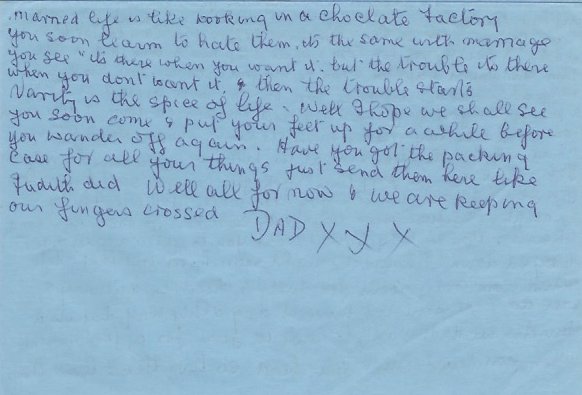 married life is like working in a choclate factory
you soon learn to hate them, its the same with marriage
you see "its there when you want it. but the trouble its there
when you dont want it, & then the trouble starts
Varity is the spice of life. Well I hope we shall see
you soon come & put your feet up for a while before
you wander off again. Have you got the packing
case for all your things just send them here like
Judith did Well all for now & we are keeping
our fingers crossed DAD X X X